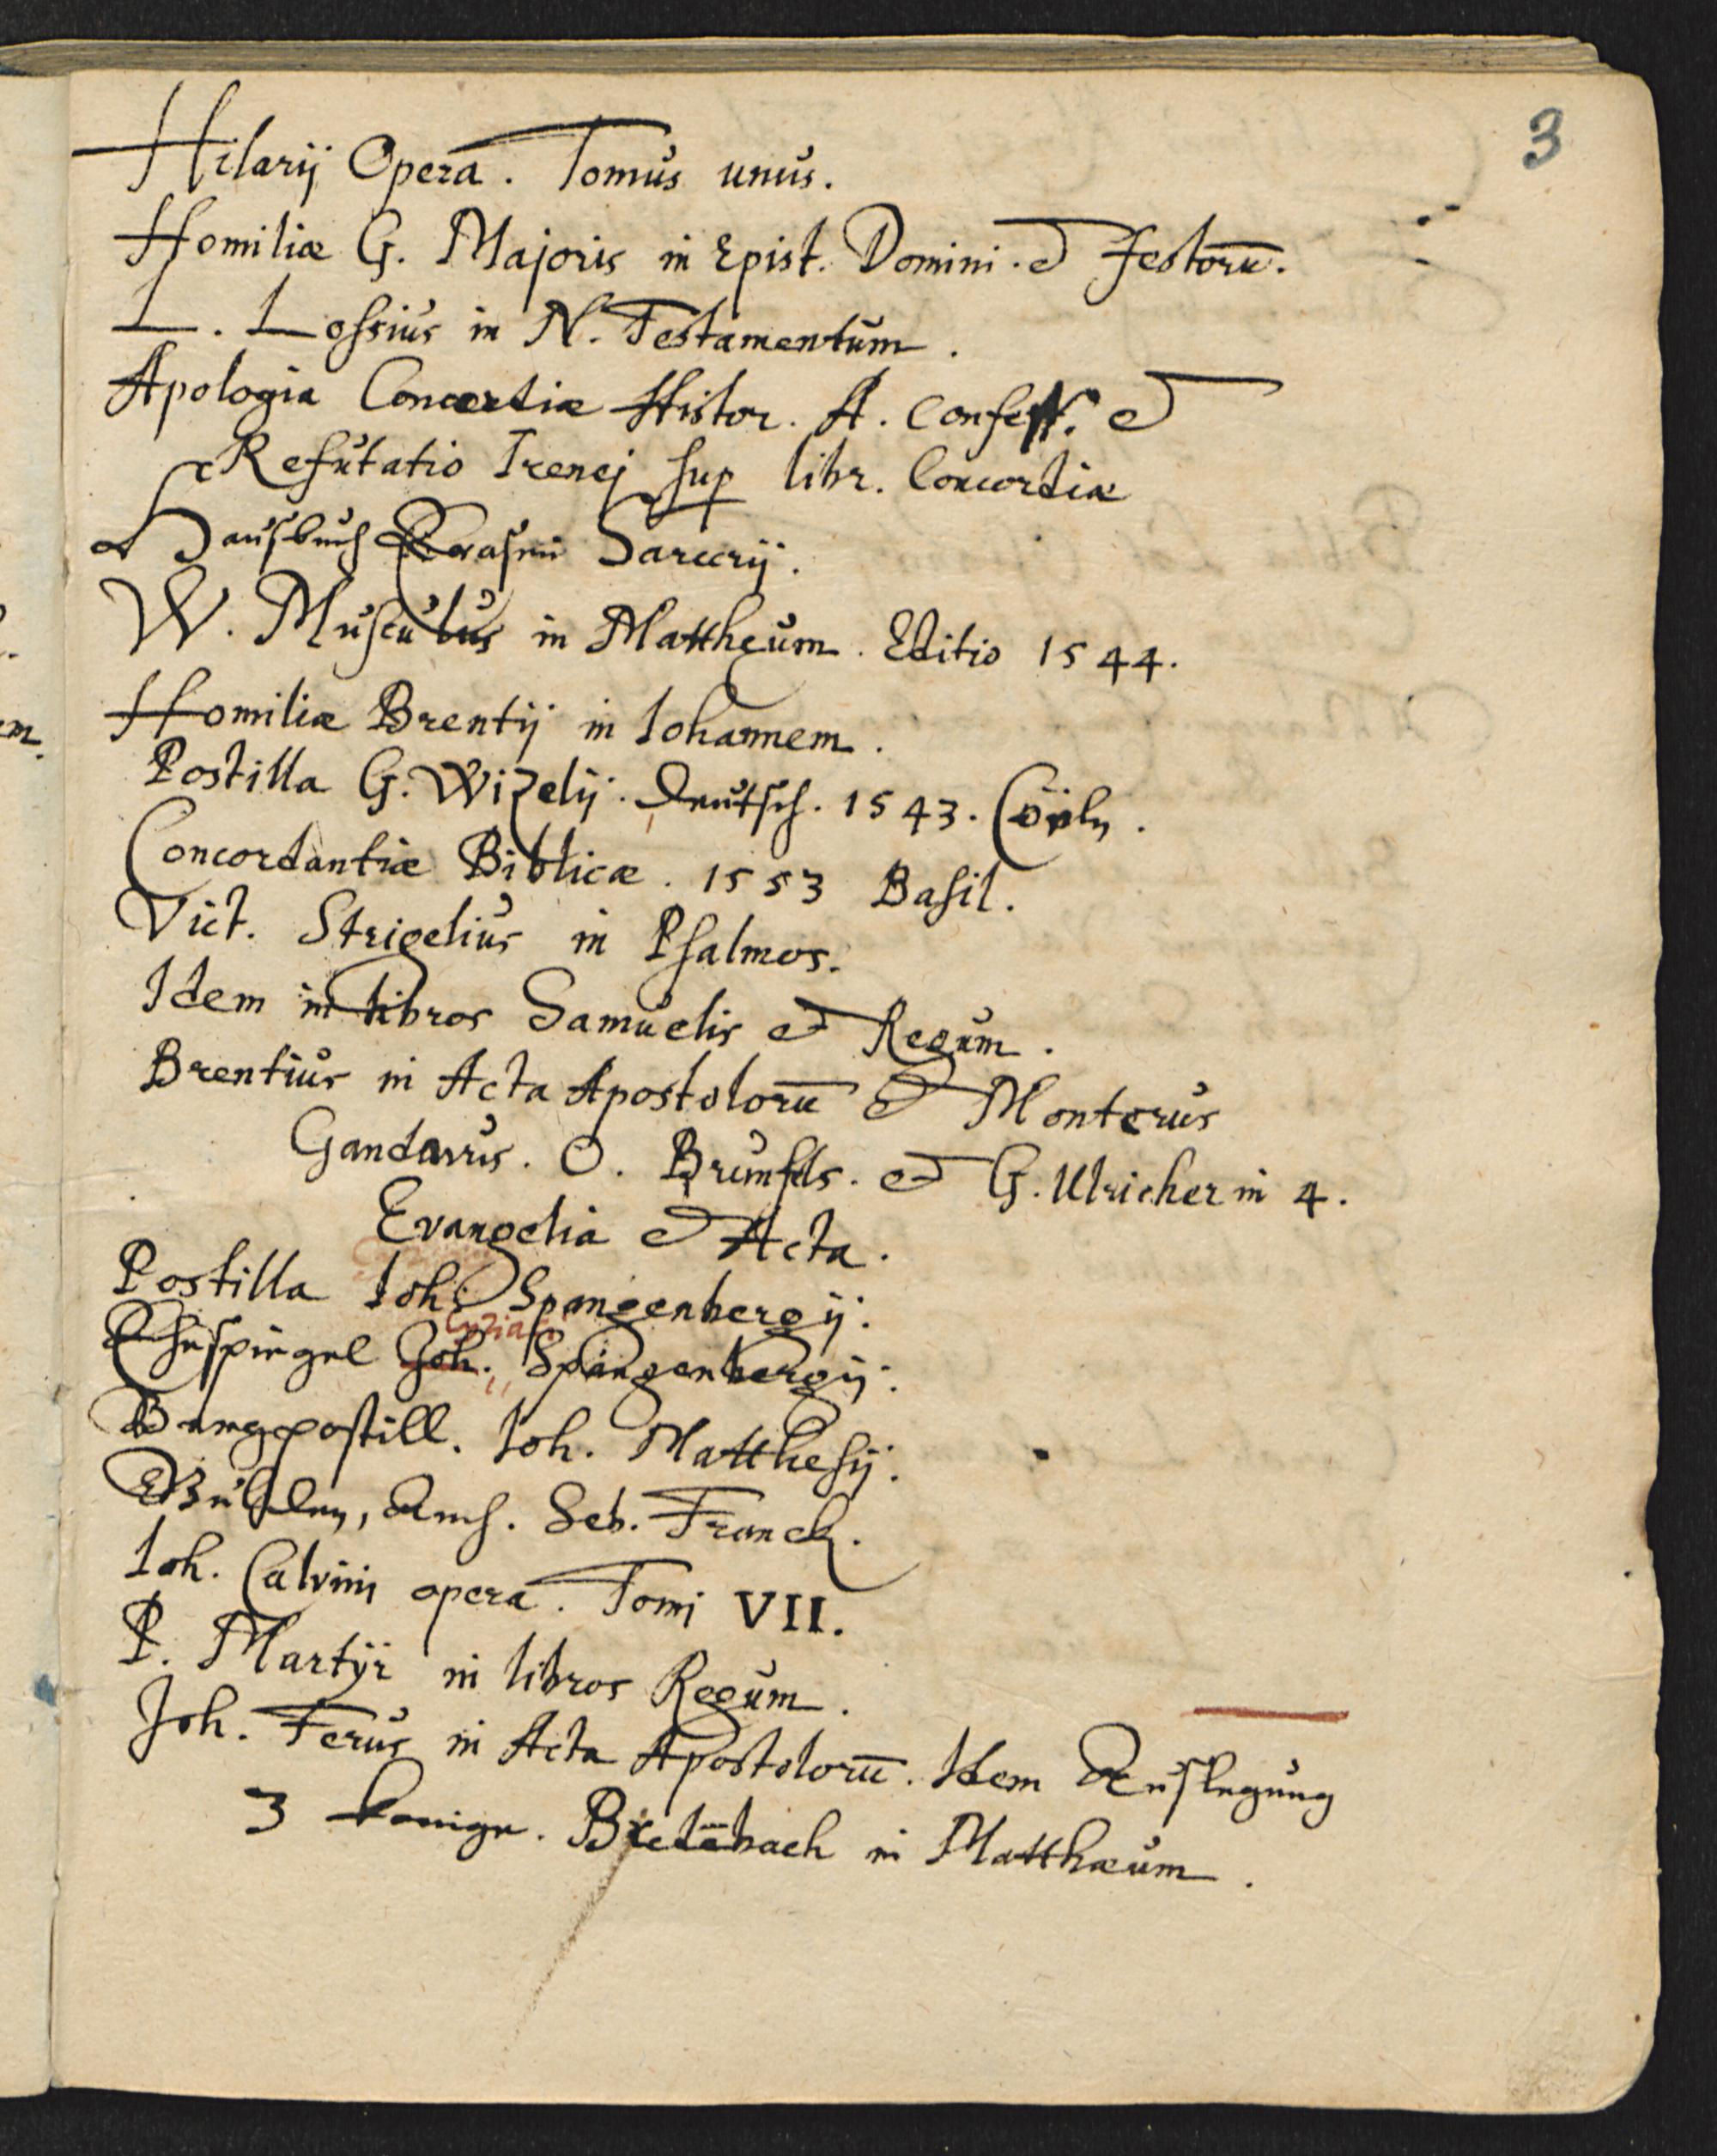 3
Hilarij Opera. Tomus unus.
Homiliæ G. Majoris in Epist. Domini. et festorū.
L. Lossius in N. Testamentum.
Apologia Concordiæ Histor. A. Confess. et
Refutatio Irenej sup libr. Concordiæ
Hausbuch Erasmi Sarcerij.
W. Musculus in Mattheum. Editio 1544.
Homiliæ Brentij in Iohannem.
Postilla G. Wizelij. Deutsch. 1543. Cöln.
Concordantiæ Biblicæ. 1553 Basil.
Vict. Strigelius in Psalmos.
Idem in libros Samuelis et Regum.
Brentius in Acta Apostolorū et Monterus
Gandavus. O. Brunfels. et G. Ulricher in 4.
Evangelia et Acta.
Postilla Ioh. Spangenbergij.
Cyriaci
Ehespiegel Joh. Spangenbergij.
Bergpostill. Ioh. Matthesij.
Seb. Franck.
Ioh. Calvini opera. Tomi VII.
P. Martyr in libros Regum.
Joh. Ferus in Acta Apostolorū. Idem Auslegung
3 konige. Bredēbach in Matthæum.